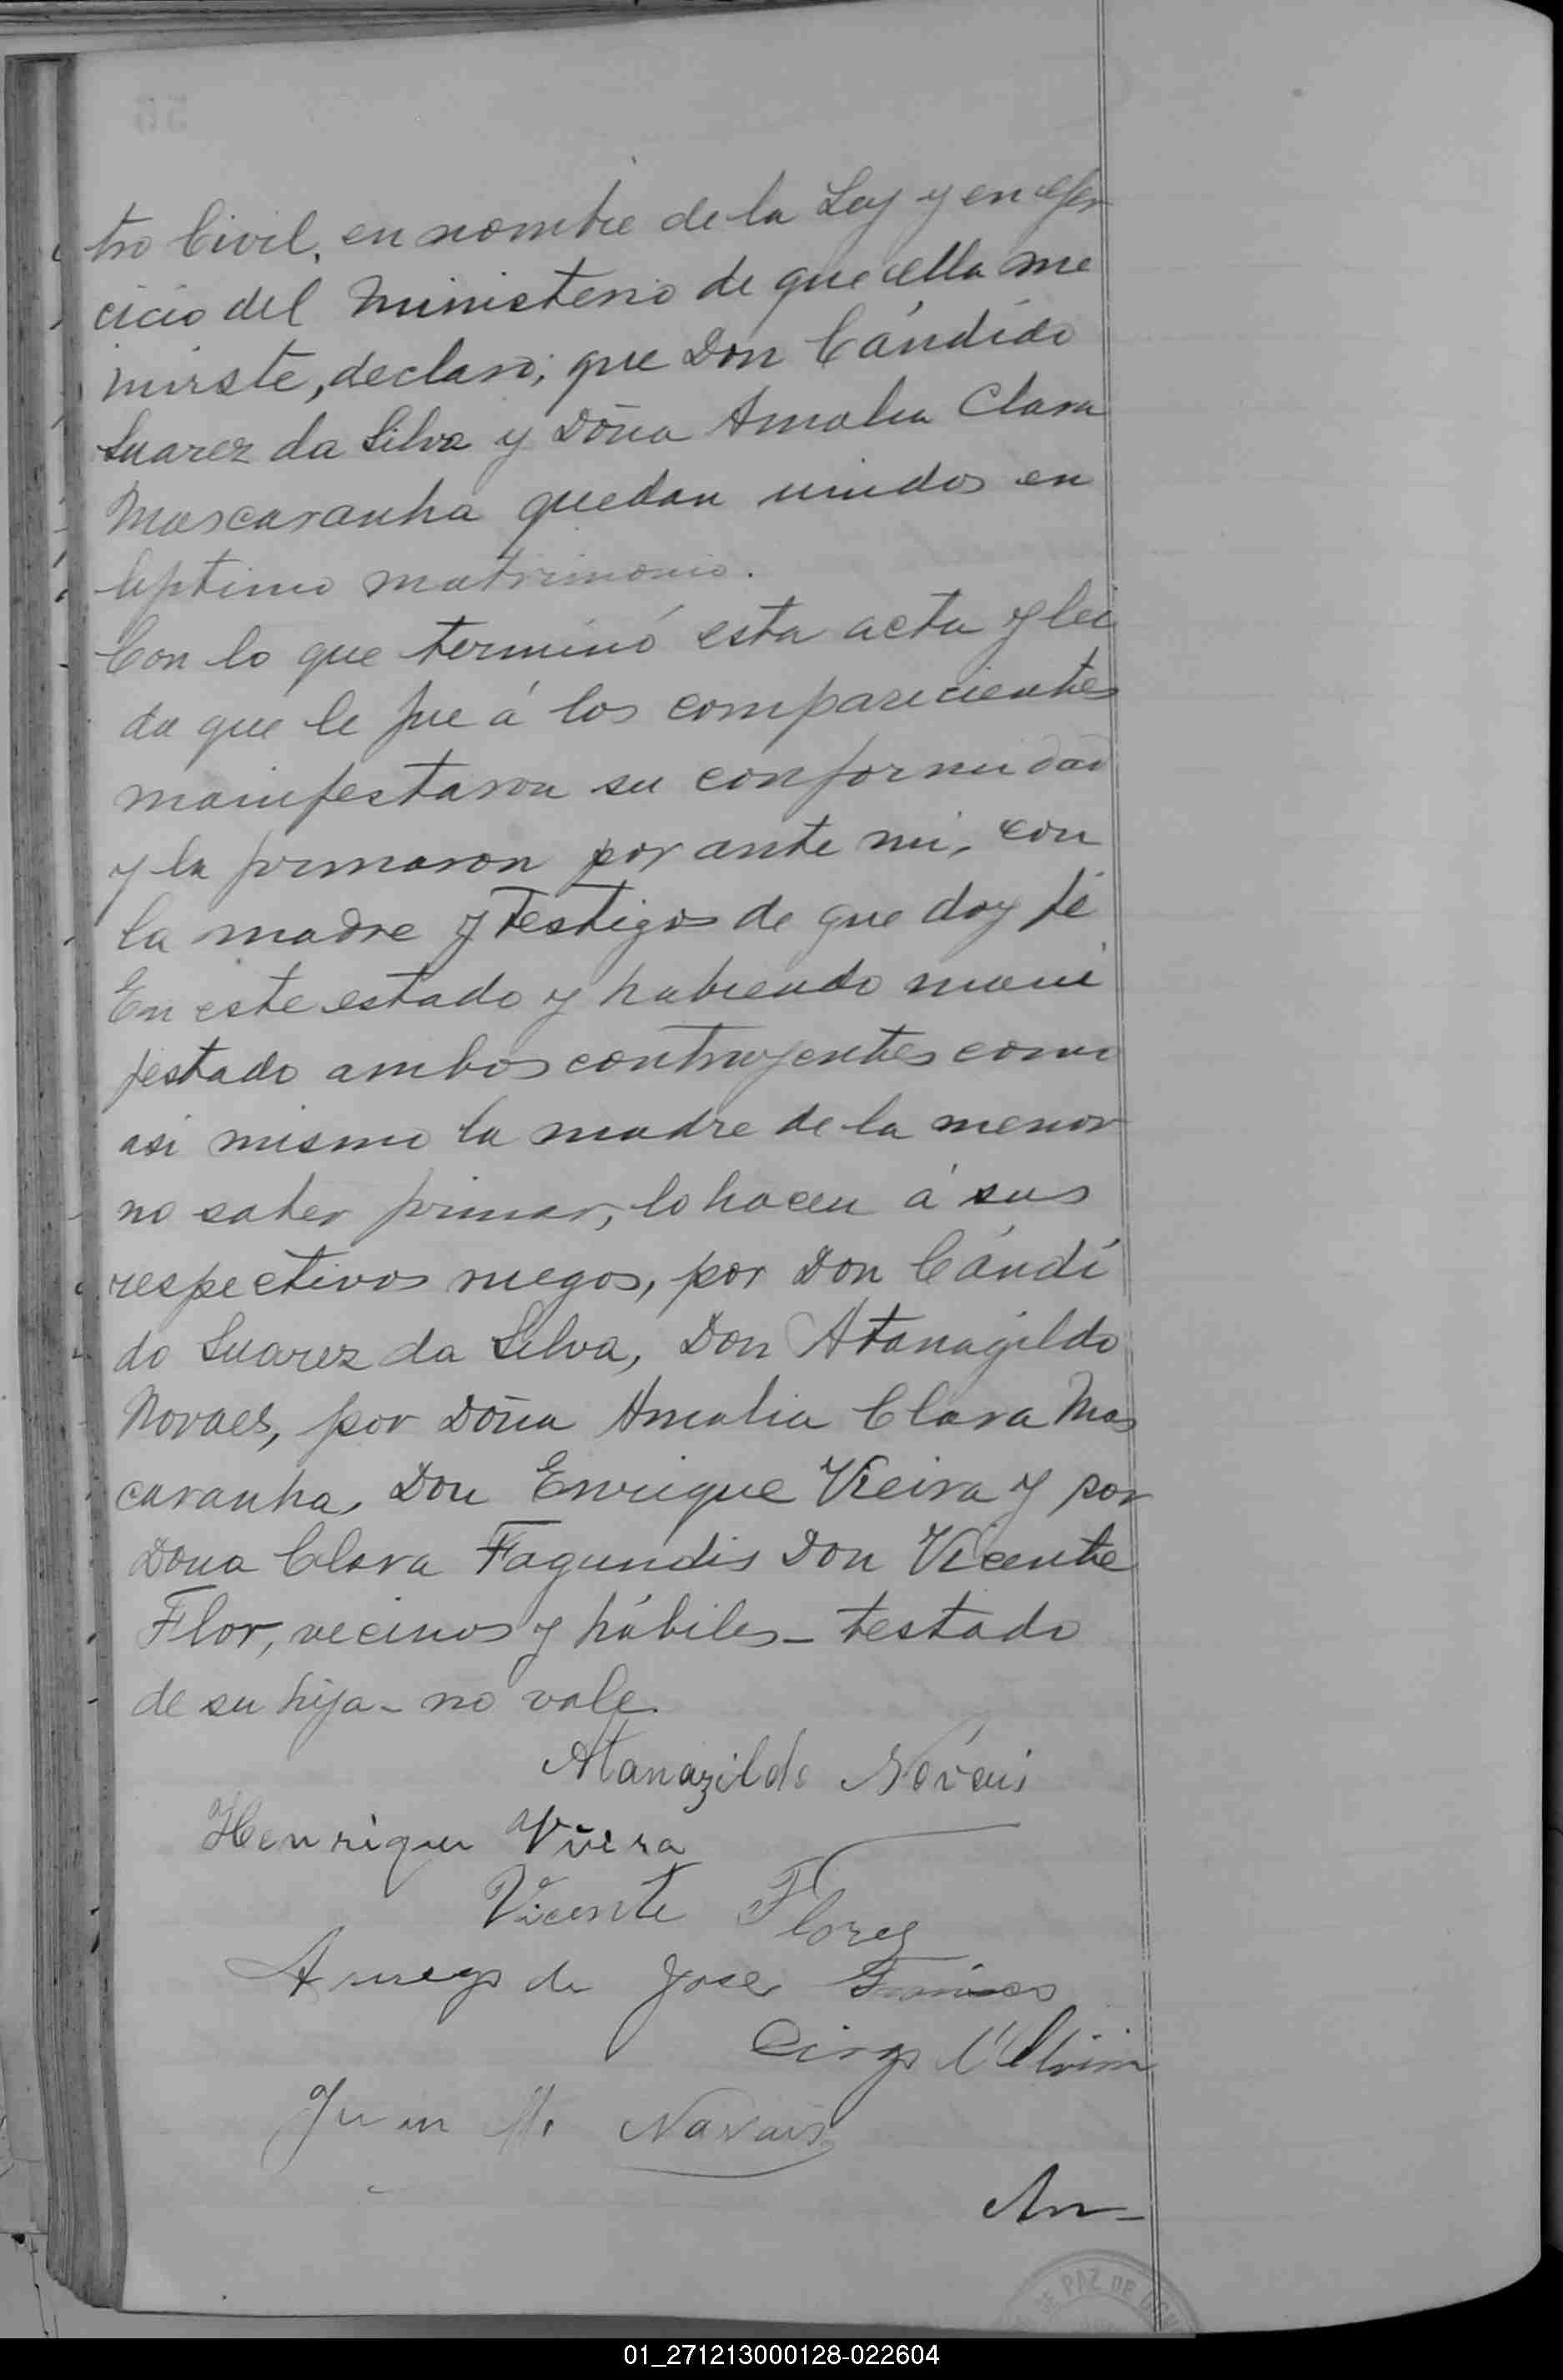 tro Civil, en nombre de la Ley y en ejer
cicio del Ministerio de que ella me
inirste, declaro; que Don Cándido
Suarez da Silva y Doña Amalia Clara
Mascaranha quedan unidos en
leptimo matrimonio.
Con lo que terminó esta acta y lei
da que le fue á los comparecientes
manifestaron su conformidad
y la firmaron por ante mi, con
la madre y testigos de que doy fé
En este estado y habiendo mani
festado ambos contrayentes como
asi mismo la madre de la menor
no saber firmar, lo hacen á sus
respectivos ruegos, por Don Cándi
do Suarez da Silva, Don Atanagildo
Novaes, por Doña Amalia Clara Mas
caranha, Don Enrique Vieira y por
Dona Clara Fagundis Don Vicente
Flor, vecinos y hábiles - testado
de su hija - no vale
Atanazildo Novais
Henrique Viera
Vicente Florez
A ruego de Jose
Juan M. Navais
An-
DE PAZ DE
01_271213000128-022604